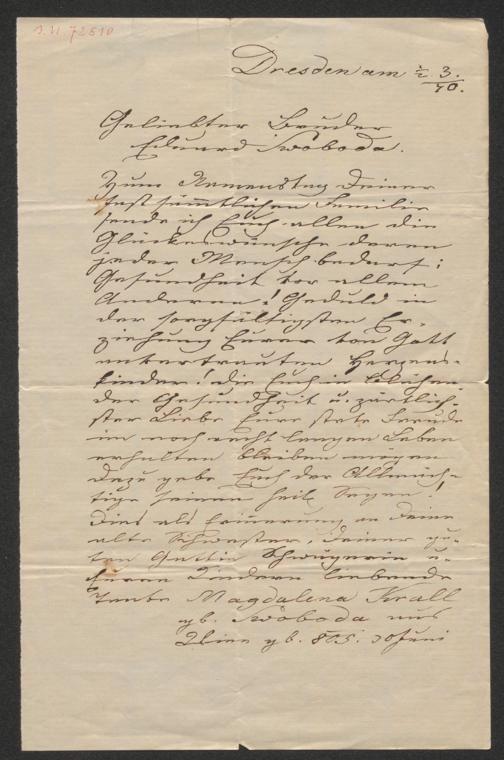 Dresden am 1/2. 3. 70.
Geliebter Bruder
Eduard Swoboda.
Zum Namenstag Deiner
fast sämmtlichen Familie
sende ich Euch allen die
Glückswünsche deren
jeder Mensch bedarf:
Gesundheit vor allem
Anderen! Geduld in
der sorgfältigsten Er-
ziehung Eurer von Gott
anvertrauten Herzens-
kinder! die Euch in
der Gesundheit u. zärtlich-
ster Liebe Eure stete Freude
im noch recht langen Leben
erhalten bleiben mögen
dazu gebe Euch der Allmäch-
tige seinen heil. Segen!
Dies als Erinnerung an Deine
alte Schwester, Deiner gu-
ten Gattin Schwägerin u.
Euren Kindern liebende
Tante Magdalena Krall
gb. Swoboda aus
Wien gb. 805. Juni